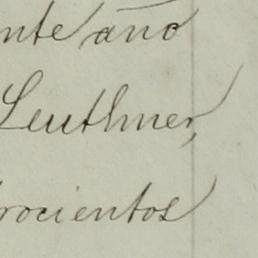 nte año
Leuthner,
rocientos